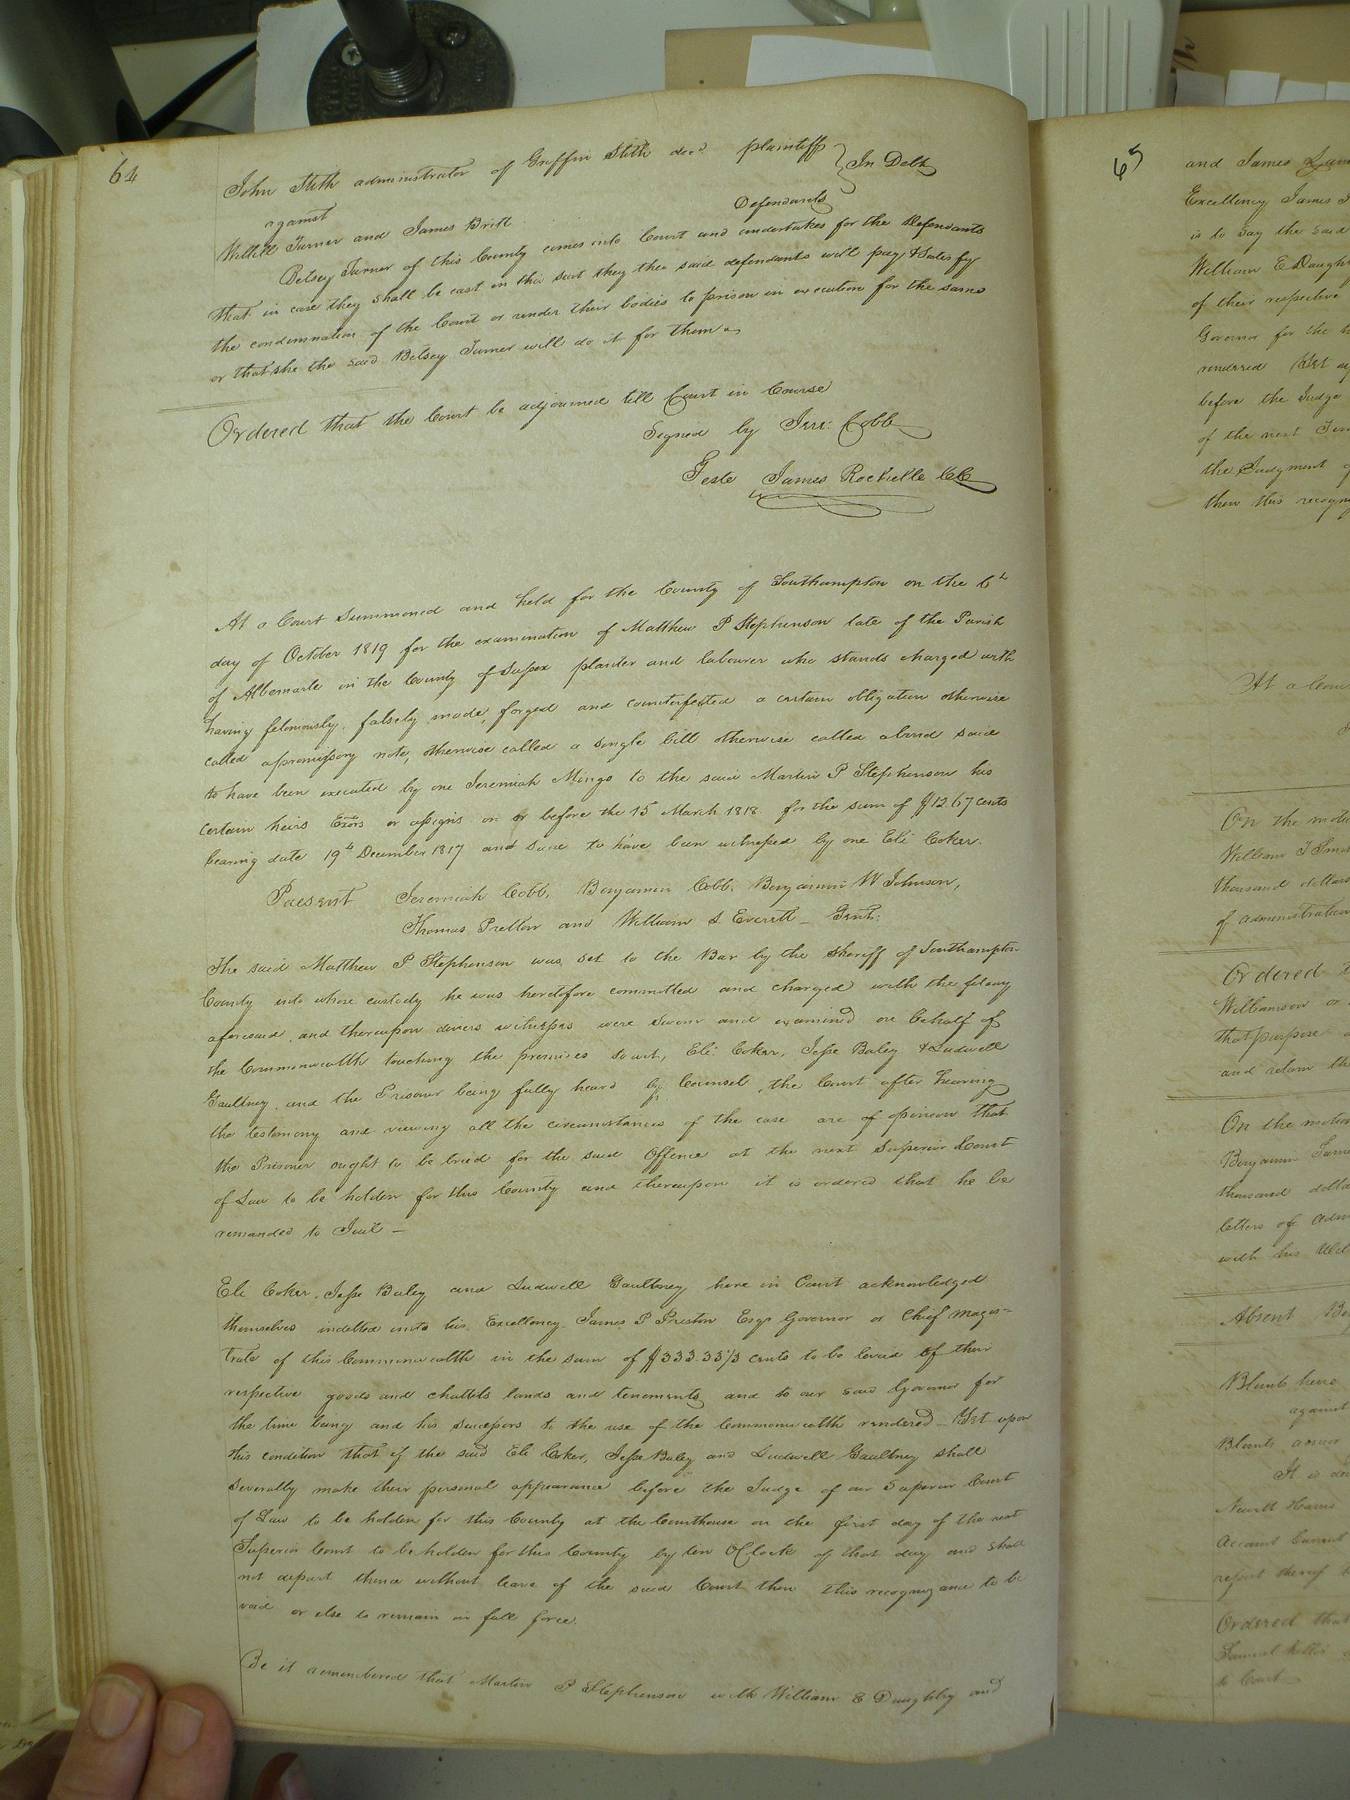 64
John Stith administrator of Griffin Stith decd plaintiff } In Debt
against
Willie Turner and James Britt Defendants
Betsey Turner of this County comes into Court and undertakes for the Defendants
that in case they shall be cast in this suit they the said defendants will pay & Satisfy
the condemnation of the Court or render their bodies to prison in execution for the same
or that she the said Betsey Turner will do it for them
Ordered that the Court be adjourned till Court in Course
Signed by Jere: Cobb
Teste James Rochelle CC
At a Court Summoned and held for the County of Southampton on the 6th
day of October 1819 for the examination of Matthew P Stephenson late of the Parish
of Albemarle in the County of Sussex planter and labourer who stands charged with
having feloniously, falsely made, forged and counterfeited a certain obligation otherwise
called a promissory note, otherwise called a single bill otherwise called a bond said
to have been executed by one Jeremiah Mingo to the said Martin P Stephenson his
certain heirs Exors or assigns on or before the 15 March 1818 for the sum of $12.67 cents
bearing date 19th December 1817 and said to have been witnessed by one Eli Coker.
Present Jeremiah Cobb, Benjamin Cobb, Benjamin W Johnson,
Thomas Pretlow and William S. Everett Gent:
The said Matthew P Stephenson was set to the Bar by the Sheriff of Southampton
County into whose custody he was heretofore committed and charged with the felony
aforesaid and thereupon divers witnesses were Sworn and examined on behalf of
the Commonwealth touching the premises to wit, Eli Coker, Jesse Baley & Ludwell
Gaultney, and the Prisoner being fully heard by Counsel, the Court after hearing
the testimony and viewing all the circumstances of the case are of opinion that
the Prisoner ought to be tried for the said Offence at the next Superior Court
of Law to be holden for this County and thereupon it is ordered that he be
remanded to Jail —
Eli Coker, Jesse Baley and Ludwell Gaultney here in Court acknowledged
themselves indebted unto his Excellency James P Preston Esqr Governor or Chief Magis=
trate of this Commonwealth in the sum of $333.33 1/3 cents to be levied of their
respective goods and chattels lands and tenements, and to our said Governor for
the time being and his Successors to the use of the Commonwealth rendered — Yet upon
this condition that if the said Eli Coker, Jesse Baley and Ludwell Gaultney shall
Severally make their personal appearance before the Judge of our Superior Court
of Law to be holden for this County at the Courthouse on the first day of the next
Superior Court to be holden for this County by ten OClock of that day and shall
not depart thence without leave of the said Court then this recognizance to be
void or else to remain in full force.
Be it remembered that Martin P Stephenson with William E Daughtry and
65
and James
Excellency James
is to say the said
William E Daugh
of their respective
Governor for the
rendered Yet
before the Judge
of the next
the Judgment
then this recogn
At a Cou
On the motio
William
thousand dollars
of administration
Ordered
Williamson or
that purpose
and return the
On the motion
Benjamin
thousand dolla
letters of Adm
with his Will
Absent
Blunt here
against
Blunts
It is
Newitt Harris
Account Current
report thereof
Ordered that
Samuel
to Court